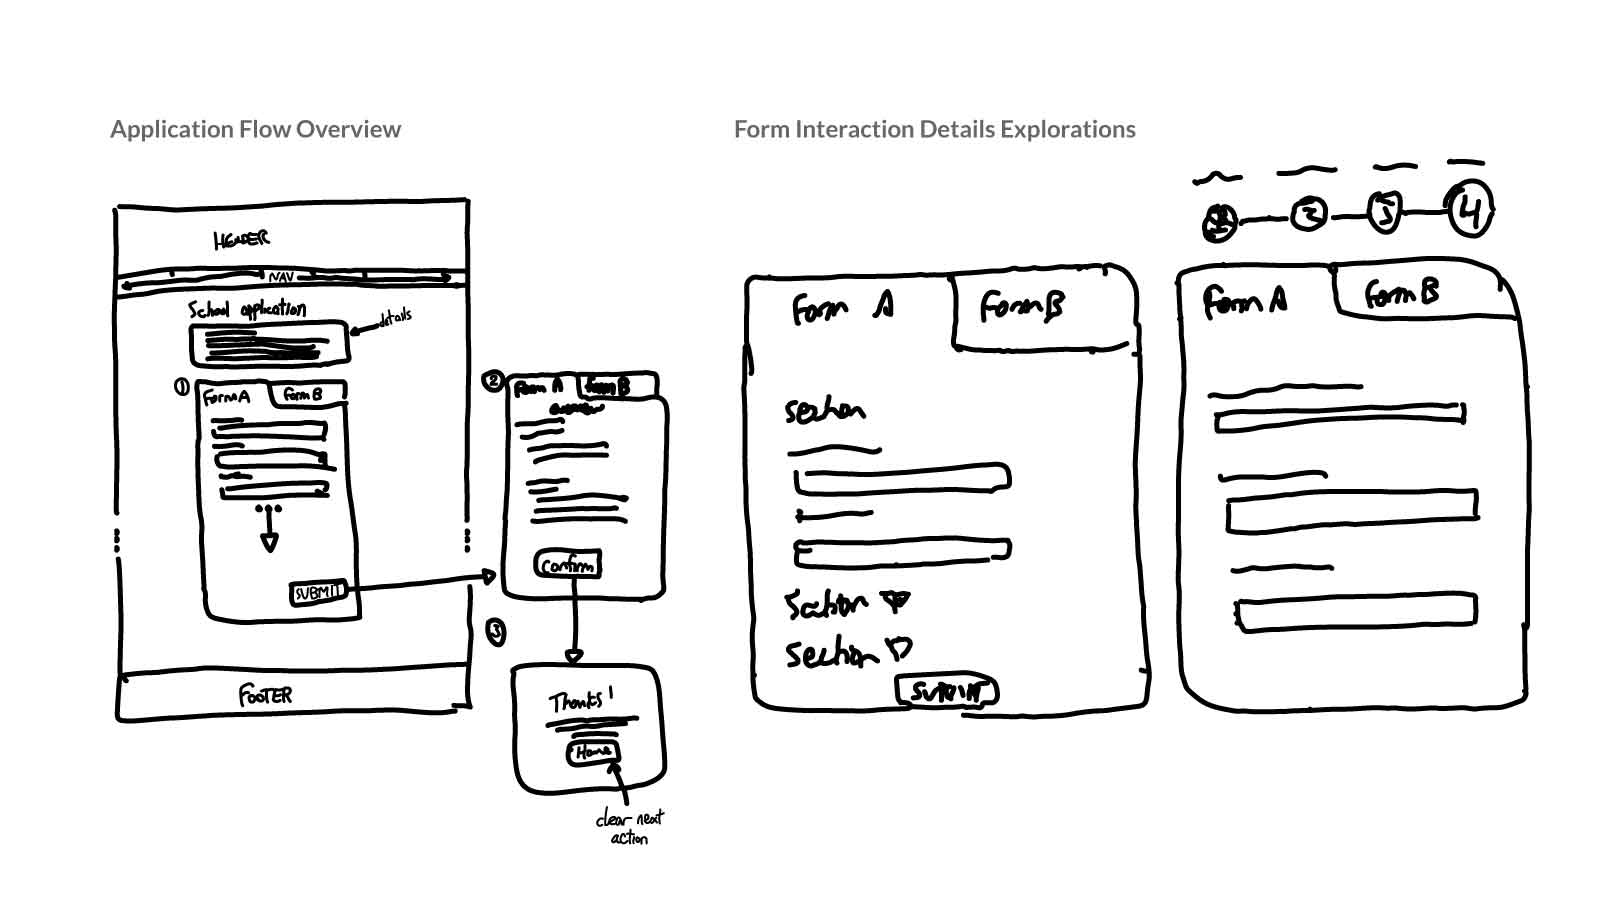 Application Flow Overview
HEADER
NAV
School application
details
1
Form A
Form B
SUBMIT
FOOTER
2
Form A
Form B
Confirm
3
Thanks!
Home
clear next
action
Form Interaction Details Explorations
Form A
Form B
Section
Section
Section
SUBMIT
2
3
4
Form A
Form B